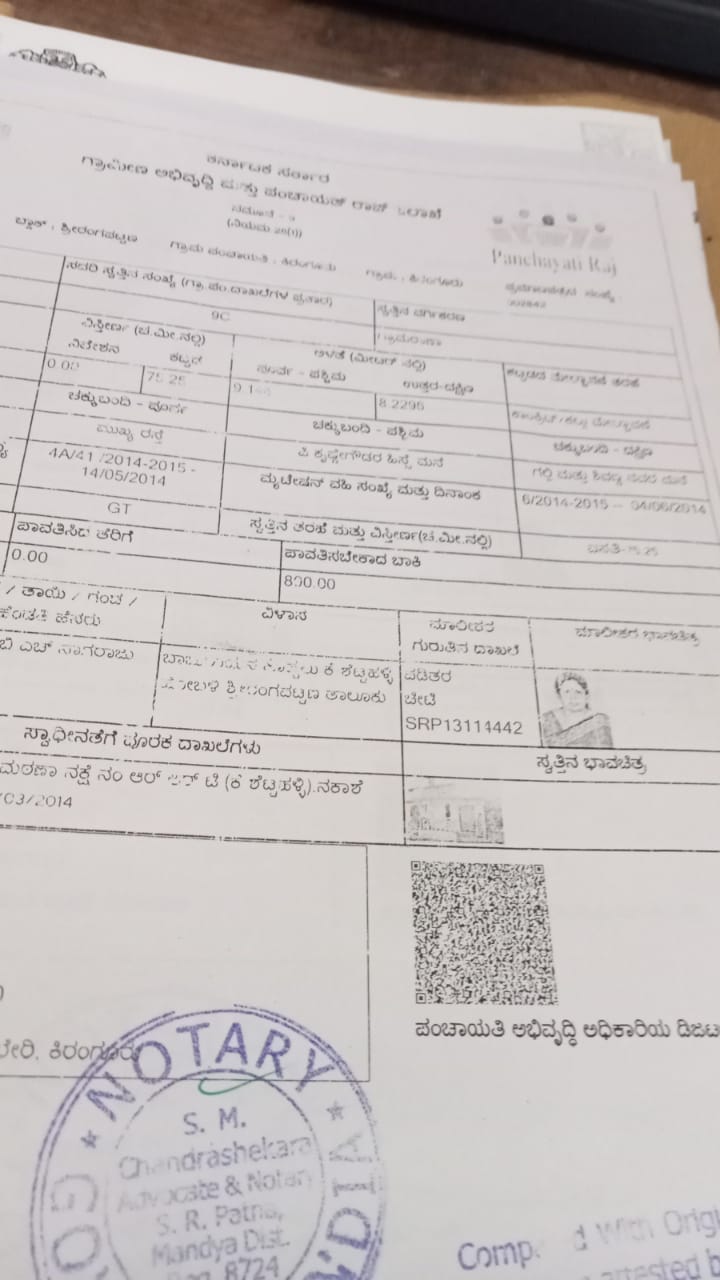 ಕರ್ನಾಟಕ ಸರ್ಕಾರ
ಗ್ರಾಮೀಣ ಅಭಿವೃದ್ಧಿ ಮತ್ತು ಪಂಚಾಯತ್ ರಾಜ್ ಇಲಾಖೆ
ನಮೂನೆ - 9
Panchayati Raj
ಬ್ಲಾಕ್ : ಶ್ರೀರಂಗಪಟ್ಟಣ ಗ್ರಾಮ ಪಂಚಾಯತಿ : ಕಿರಂಗೂರು ಗ್ರಾಮ : ಕಿರಂಗೂರು
ಸದರಿ ಸ್ವತ್ತಿನ ಸಂಖ್ಯೆ (ಗ್ರಾ.ಪಂ.ದಾಖಲೆಗಳ ಪ್ರಕಾರ) ಸ್ವತ್ತಿನ ವರ್ಗೀಕರಣ
9C
ವಿಸ್ತೀರ್ಣ (ಚ.ಮೀ.ನಲ್ಲಿ) ಅಳತೆ (ಮೀಟರ್ ನಲ್ಲಿ)
ನಿವೇಶನ ಕಟ್ಟಡ ಪೂರ್ವ - ಪಶ್ಚಿಮ ಉತ್ತರ-ದಕ್ಷಿಣ
0.00 75.25 8.2296
ಚಕ್ಕುಬಂದಿ - ಪೂರ್ವ ಚಕ್ಕುಬಂದಿ - ಪಶ್ಚಿಮ ಚಕ್ಕುಬಂದಿ - ದಕ್ಷಿಣ
ಮುಖ್ಯ ರಸ್ತೆ ಪಿ ಕೃಷ್ಣೇಗೌಡರ ಹಿಸ್ಸೆ ಮನೆ
4A/41 /2014-2015 -
14/05/2014 ಮ್ಯುಟೇಷನ್ ವಹಿ ಸಂಖ್ಯೆ ಮತ್ತು ದಿನಾಂಕ 6/2014-2015 -- 04/06/2014
GT ಸ್ವತ್ತಿನ ತರಹೆ ಮತ್ತು ವಿಸ್ತೀರ್ಣ(ಚ.ಮೀ.ನಲ್ಲಿ) ವಸತಿ-75.25
ಪಾವತಿಸಿದ ತೆರಿಗೆ ಪಾವತಿಸಬೇಕಾದ ಬಾಕಿ
0.00 800.00
/ ತಾಯಿ / ಗಂಡ / ವಿಳಾಸ ಮಾಲೀಕರ ಮಾಲೀಕರ ಭಾವಚಿತ್ರ
ಹೆಸರು ಗುರುತಿನ ದಾಖಲೆ
ಬಿ ಎಚ್ ನಾಗರಾಜು ಕೆ ಶೆಟ್ಟಹಳ್ಳಿ ಪಡಿತರ
ಹೋಬಳಿ ಶ್ರೀರಂಗಪಟ್ಟಣ ತಾಲೂಕು ಚೀಟಿ
SRP13114442
ಸ್ವಾಧೀನತೆಗೆ ಪೂರಕ ದಾಖಲೆಗಳು ಸ್ವತ್ತಿನ ಭಾವಚಿತ್ರ
ನಕ್ಷೆ ನಂ ಆರ್ ಎಸ್ ಟಿ (ಕೆ ಶೆಟ್ಟಹಳ್ಳಿ).ನಕಾಶೆ
/03/2014
ಪಂಚಾಯತಿ ಅಭಿವೃದ್ಧಿ ಅಧಿಕಾರಿಯ ಡಿಜಿಟ
ಚೇರಿ, ಕಿರಂಗೂರು
NOTARY
S. M.
Chandrashekara
Advocate & Notary
S. R. Patna,
Mandya Dist.
Reg. 8724
With Origi